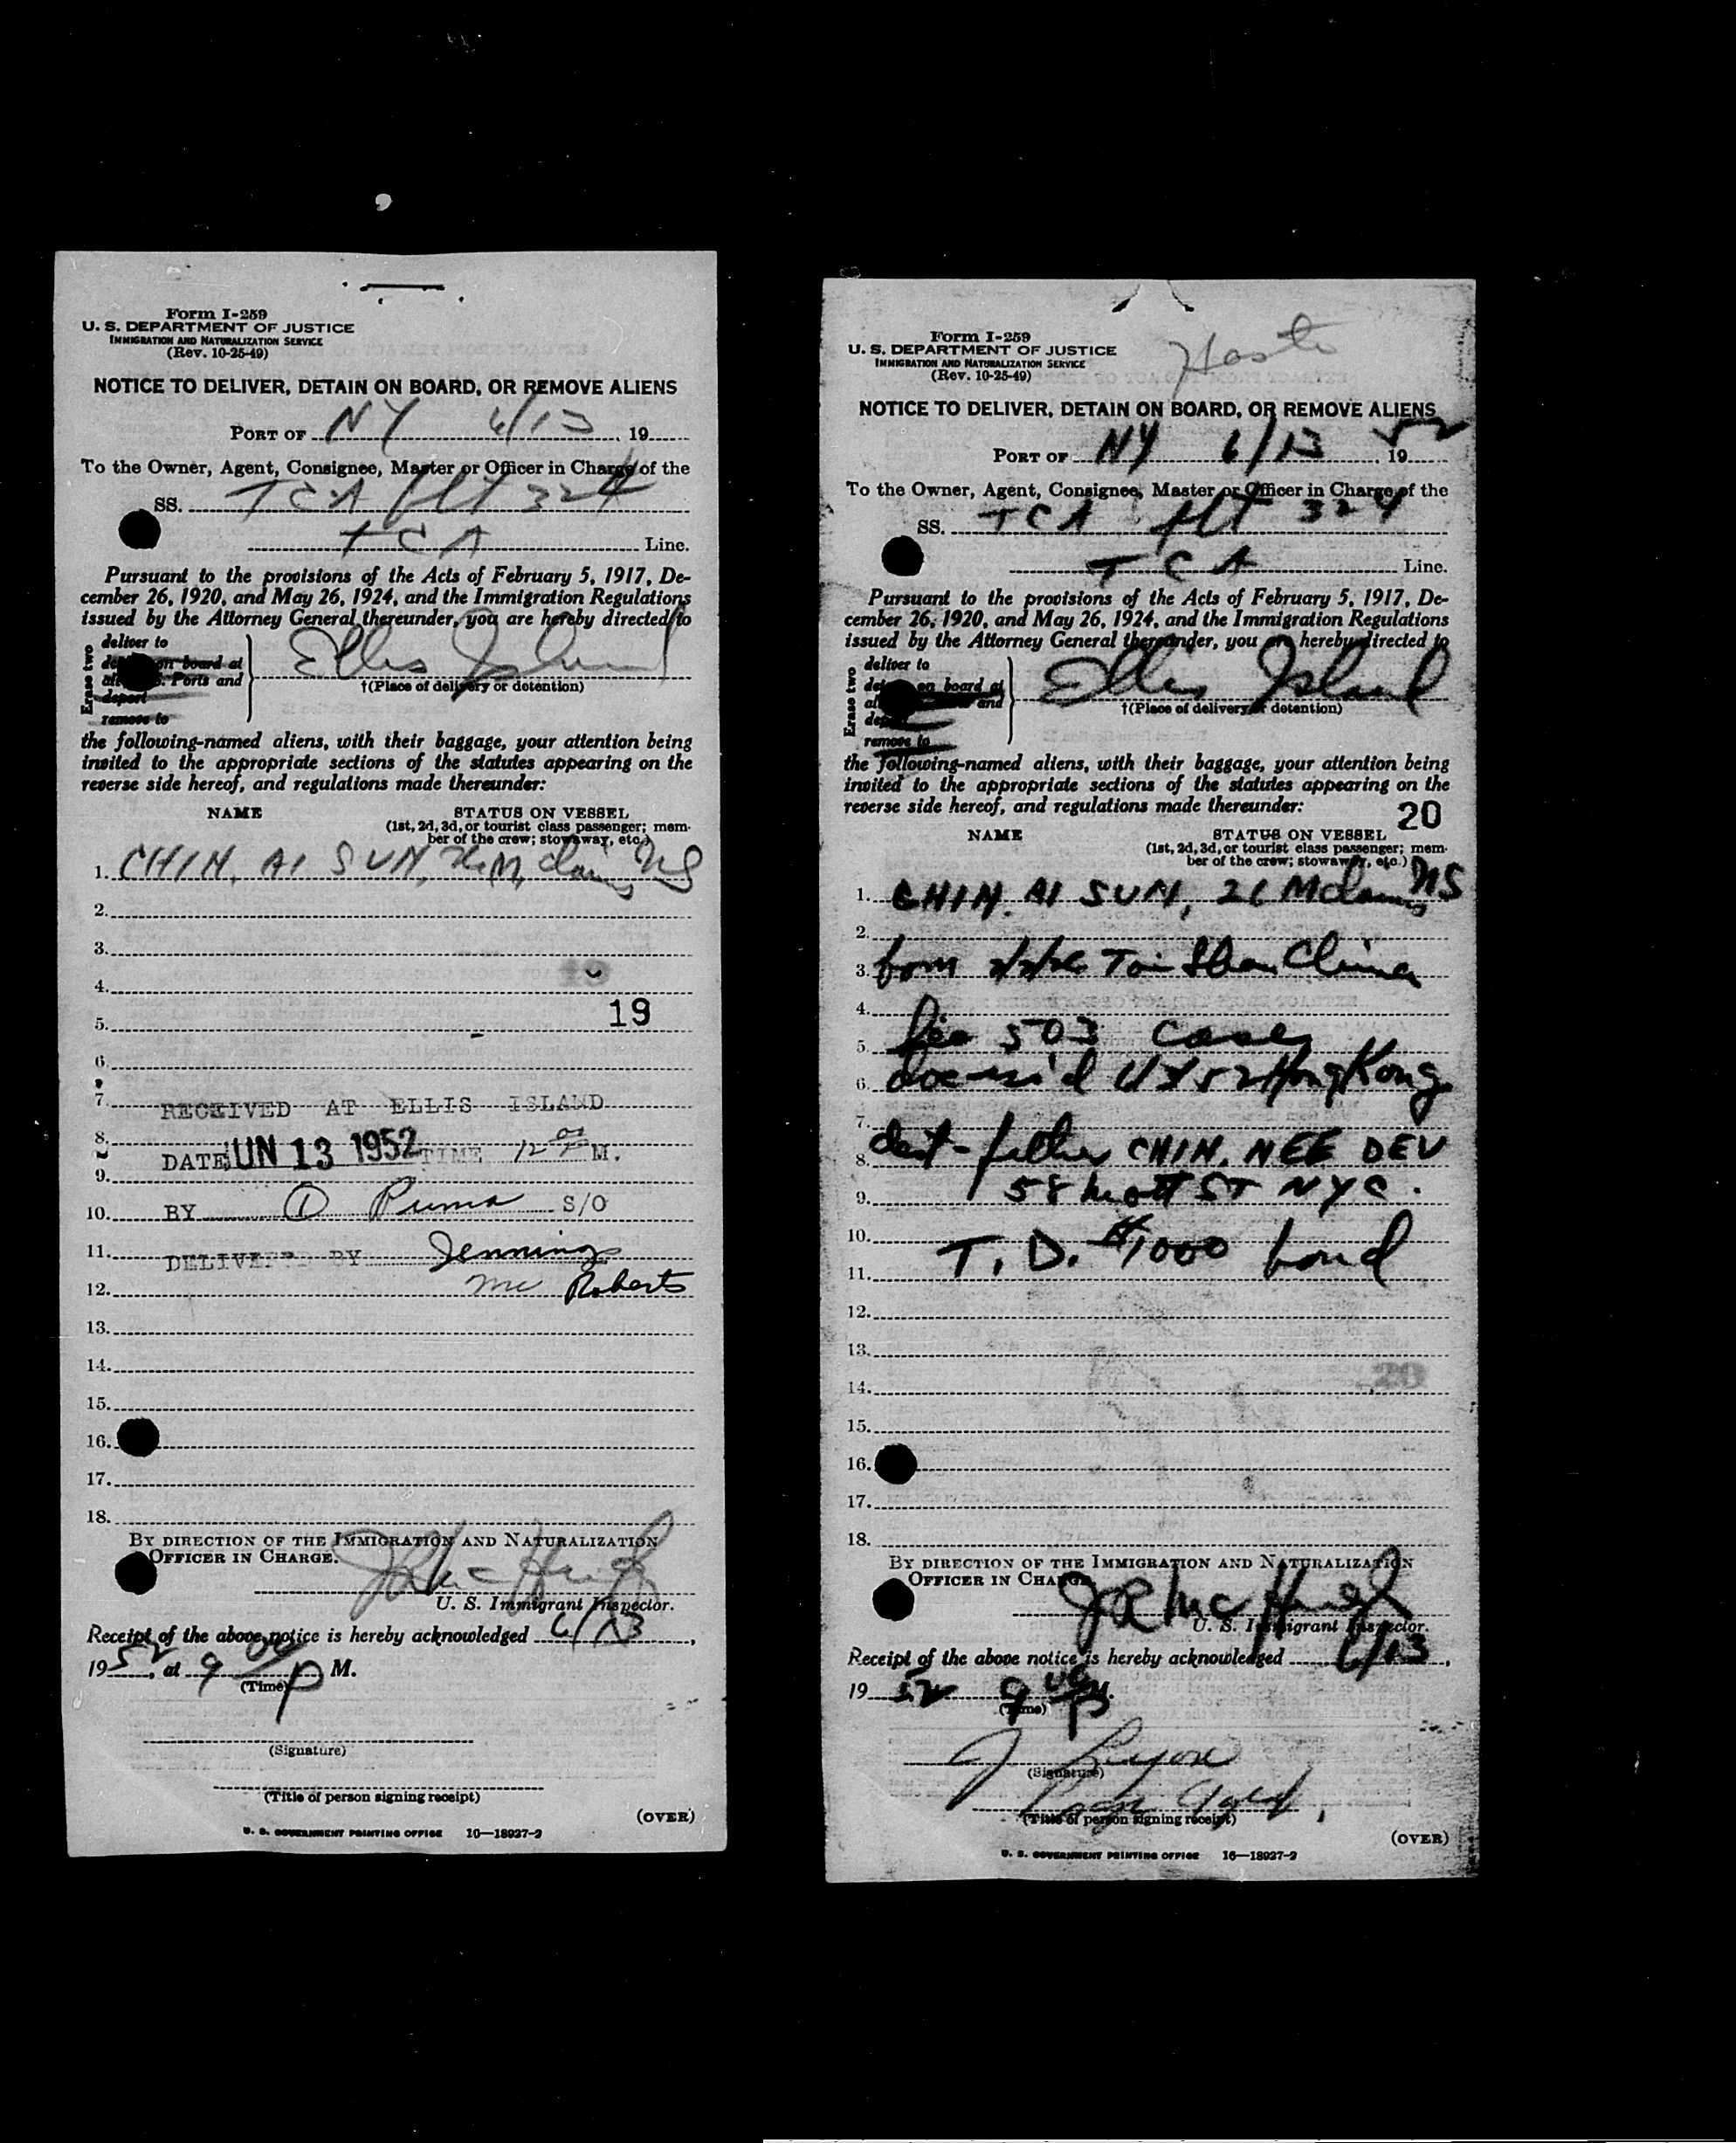 Form I-259
U. S. DEPARTMENT OF JUSTICE
IMMIGRATION AND NATURALIZATION SERVICE
(Rev. 10-25-49)
NOTICE TO DELIVER, DETAIN ON BOARD, OR REMOVE ALIENS
PORT OF NY 6/13, 19
To the Owner, Agent, Consignee, Master or Officer in Charge of the
SS. TCA flt 324
TCA Line.
Pursuant to the provisions of the Acts of February 5, 1917, De-
cember 26, 1920, and May 26, 1924, and the Immigration Regulations
issued by the Attorney General thereunder, you are hereby directed to
Erase two
deliver to
on board at
Ports and
deport
remove to
Ellis Island
†(Place of delivery or detention)
the following-named aliens, with their baggage, your attention being
invited to the appropriate sections of the statutes appearing on the
reverse side hereof, and regulations made thereunder:
NAME STATUS ON VESSEL
(1st, 2d, 3d, or tourist class passenger; mem-
ber of the crew; stowaway, etc.)
1. CHIN, AI SUN, 26 M, claims US
2.
3.
4. 19
5. 19
6.
7. RECEIVED AT ELLIS ISLAND
8. DATE JUN 13 1952 TIME 12 M.
9.
10. BY Puma S/O
11. DELIVERED BY Jennings
12. Mc Roberts
13.
14.
15.
16.
17.
18.
BY DIRECTION OF THE IMMIGRATION AND NATURALIZATION
OFFICER IN CHARGE.
U. S. Immigrant Inspector.
Receipt of the above notice is hereby acknowledged 6/13,
1952, at 9 00 P M.
(Time)
(Signature)
(Title of person signing receipt)
(OVER)
U. S. GOVERNMENT PRINTING OFFICE 16—18927-2
Form I-259
U. S. DEPARTMENT OF JUSTICE
IMMIGRATION AND NATURALIZATION SERVICE
(Rev. 10-25-49)
NOTICE TO DELIVER, DETAIN ON BOARD, OR REMOVE ALIENS
PORT OF NY 6/13, 19 52
To the Owner, Agent, Consignee, Master or Officer in Charge of the
SS. TCA flt 324
TCA Line.
Pursuant to the provisions of the Acts of February 5, 1917, De-
cember 26, 1920, and May 26, 1924, and the Immigration Regulations
issued by the Attorney General thereunder, you are hereby directed to
Erase two
deliver to
on board at
and
remove to
Ellis Island
†(Place of delivery or detention)
the following-named aliens, with their baggage, your attention being
invited to the appropriate sections of the statutes appearing on the
reverse side hereof, and regulations made thereunder:
20
NAME STATUS ON VESSEL
(1st, 2d, 3d, or tourist class passenger; mem-
ber of the crew; stowaway, etc.)
1. CHIN, AI SUN, 26 M claims US
2.
3. born 2/2/26 Toi Shan China
4.
5. 503 case
6. Hong Kong
7.
8. dest - father CHIN, NEE DEU
9. 58 Mott ST NYC.
10. T. D. $1000 bond
11.
12.
13.
14. 20
15.
16.
17.
18.
BY DIRECTION OF THE IMMIGRATION AND NATURALIZATION
OFFICER IN CHARGE
U. S. Immigrant Inspector.
Receipt of the above notice is hereby acknowledged 6/13,
19 52 9 00 P M.
(Time)
(Signature)
(Title of person signing receipt)
(OVER)
U. S. GOVERNMENT PRINTING OFFICE 16—18927-2